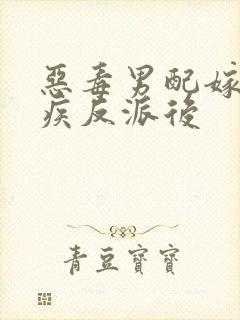 惡毒男配嫁
疾反派後
青豆寶寶